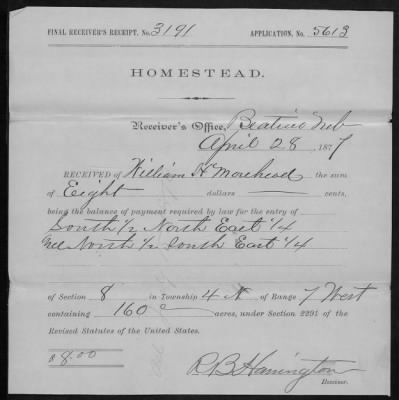 FINAL RECEIVER'S RECEIPT. No. 3191 APPLICATION, No. 5613
HOMESTEAD.
Receiver's Office, Beatrice Neb
April 28, 1877
RECEIVED OF William H Morehead the sum
of Eight dollars cents,
being the balance of payment required by law for the entry of
South 1/2 North East 1/4
North 1/2 South East 1/4
of Section 8 in Township 4 N of Range 7 West
containing 160 acres, under Section 2291 of the
Revised Statutes of the United States.
$8.00
R B Harrington
Receiver.